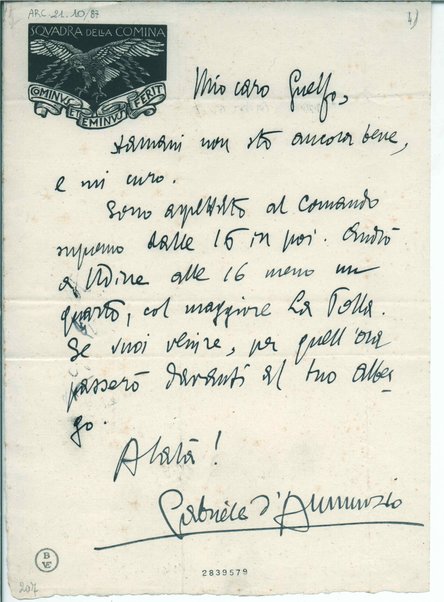 ARC 21.10/87
4)
SQVADRA DELLA COMINA
COMINVS ET EMINVS FERIT
Mio caro Guelfo,
stamani non sto ancora bene,
e mi curo.
Sono aspettato al Comando
supremo dalle 16 in poi. Andrò
a Udine alle 16 meno un
quarto, col maggiore La Polla.
Se vuoi venire, per quell'ora
passerò davanti al tuo alber
go.
Alalà!
Gabriele d'Annunzio
B
VE
2839579
207